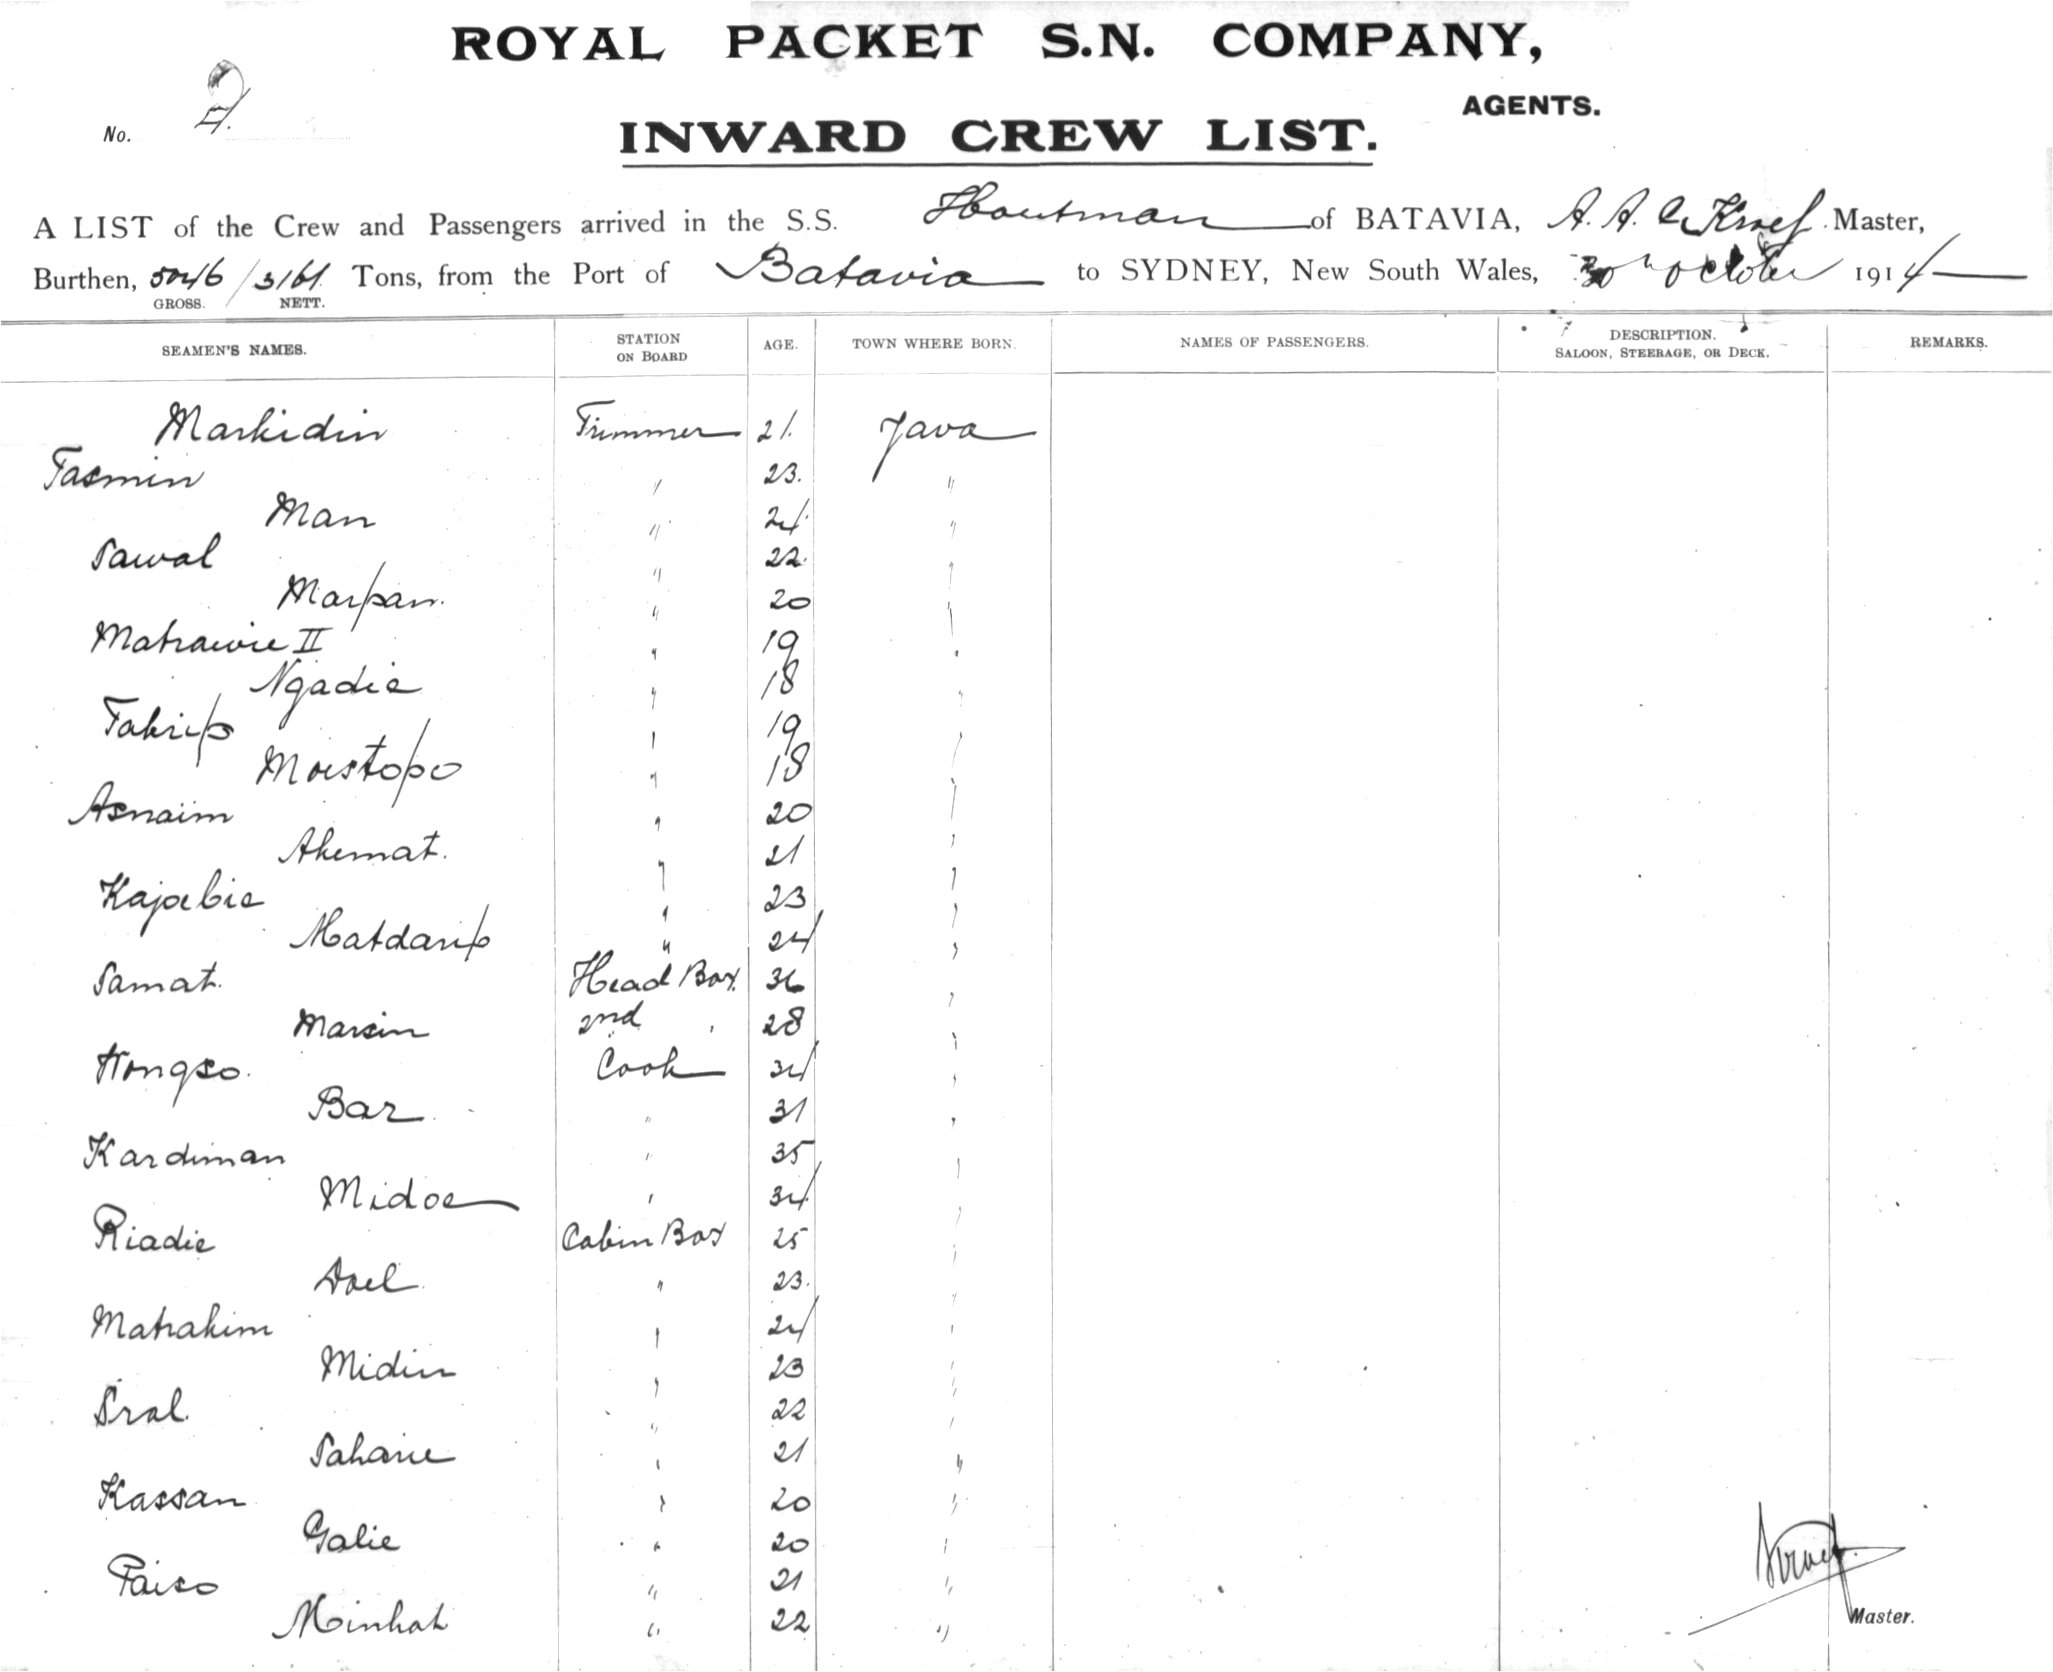 ROYAL PACKET S.N. COMPANY,
AGENTS.
No.
INWARD CREW LIST.
A LIST of the Crew and Passengers arrived in the S.S. Houtman of BATAVIA, A. A. Master,
Burthen, 5046 / 3161 Tons, from the Port of Batavia to SYDNEY, New South Wales, 30 October 1914
GROSS. NETT.
SEAMEN'S NAMES. STATION ON BOARD AGE. TOWN WHERE BORN. NAMES OF PASSENGERS. DESCRIPTION. SALOON, STEERAGE, OR DECK. REMARKS.
Markidin Trimmer 21. Java
Tasmin " 23. "
Man " 24. "
Sawal " 22. "
Marpan. " 20 "
Matrawie II " 19 "
Ngadie " 18 "
Takrip " 19 "
Moestopo " 18 "
Asnaim " 20 "
Ahemat. " 21 "
Kajoebie " 23 "
Matdarip " 24 "
Samat. Head Boy. 36 "
Marsin 2nd " 28 "
Wongso. Cook 34 "
Bar " 31 "
Kardiman " 35 "
Midoe " 34 "
Riadie Cabin Boy 25 "
Doel " 23. "
Matrakim " 24 "
Midin " 23 "
Sral. " 22 "
Saharie " 21 "
Kassan " 20 "
Galie " 20 "
Paiso " 21 "
Minhat " 22 "
Master.